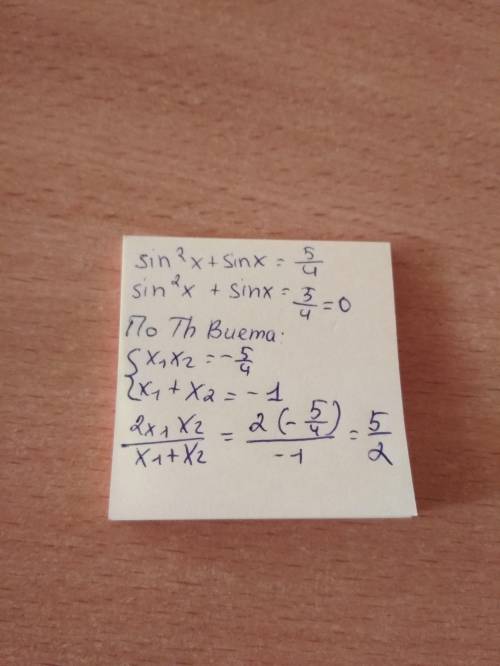 sin²x + sinx = 5/4
sin²x + sinx = 5/4 = 0
По Th Виета:
{x₁x₂ = -5/4
{x₁ + x₂ = -1
2x₁x₂/x₁+x₂ = 2(-5/4)/-1 = 5/2